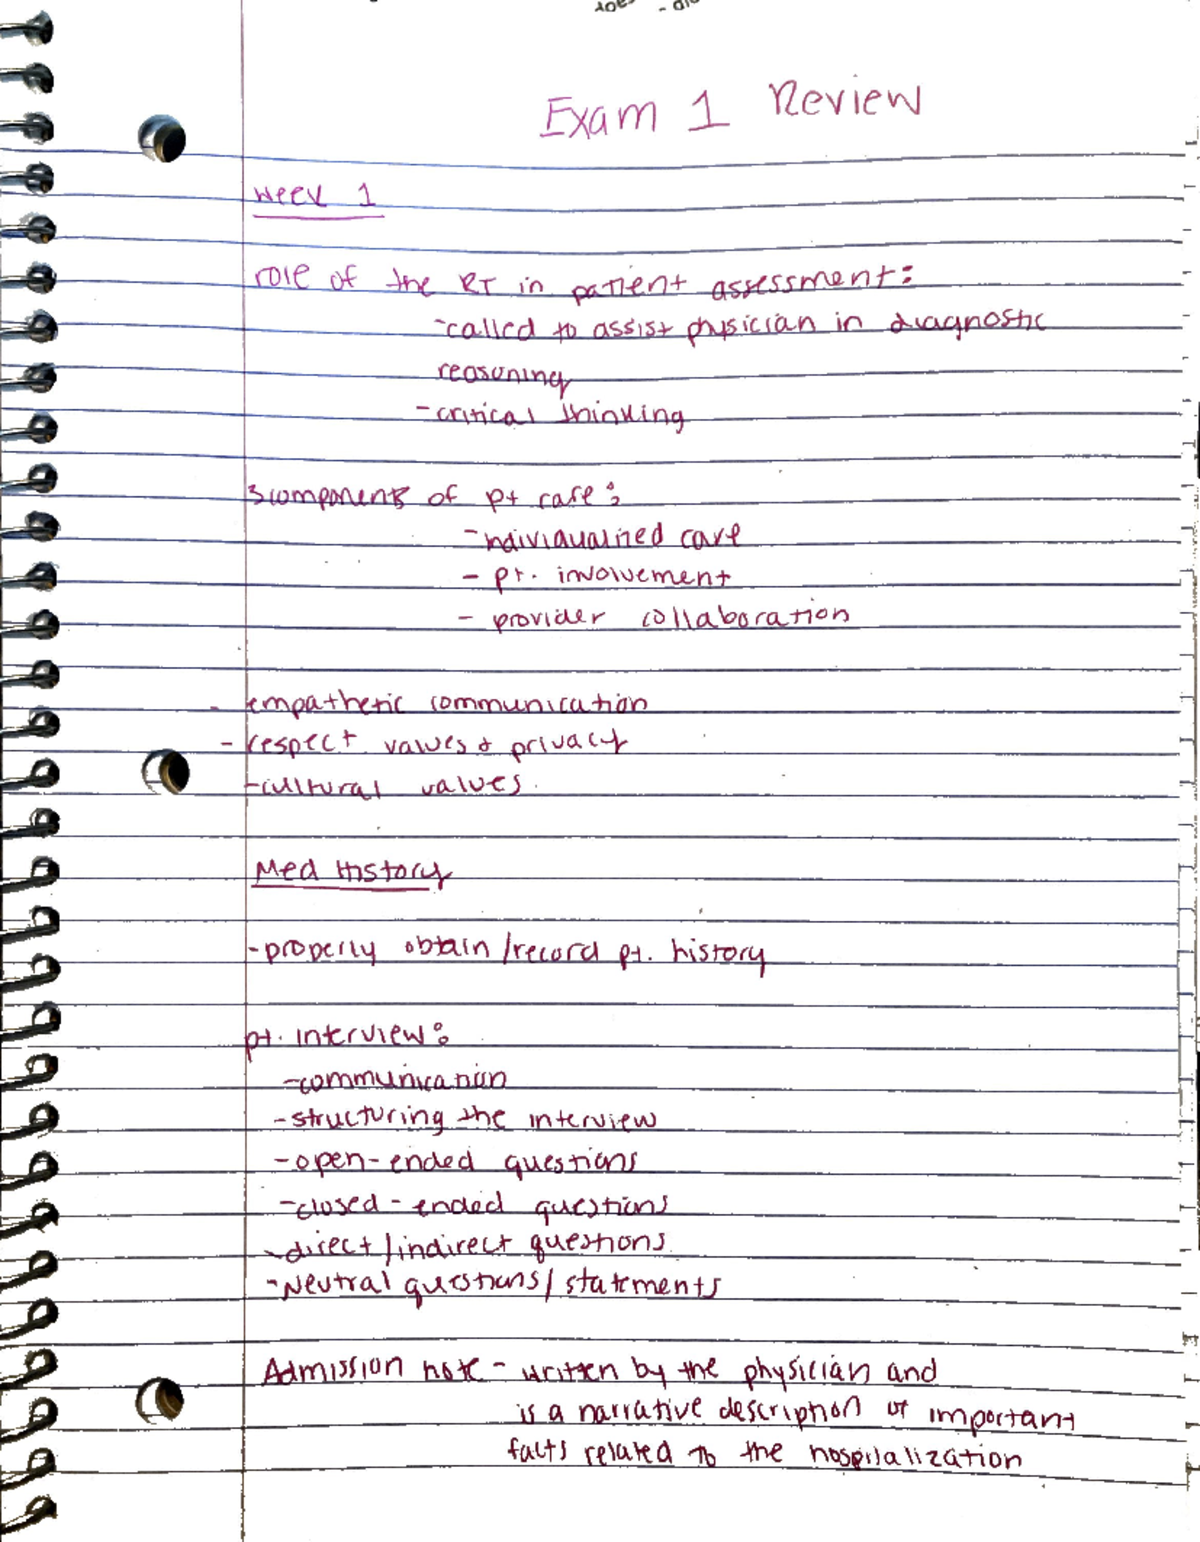 Exam 1 Review
Week 1
role of the RT in patient assessment:
-called to assist physician in diagnostic
reasoning
-critical thinking
3 components of pt care:
-individualized care
- pt. involvement
- provider collaboration
- empathetic communication
- respect values & privacy
-cultural values.
Med History
-properly obtain/record pt. history
pt. interview:
-communication
-structuring the interview
-open-ended questions
-closed-ended questions
-direct/indirect questions
-Neutral questions/statements
Admission note - written by the physician and
is a narrative description of important
facts related to the hospitalization